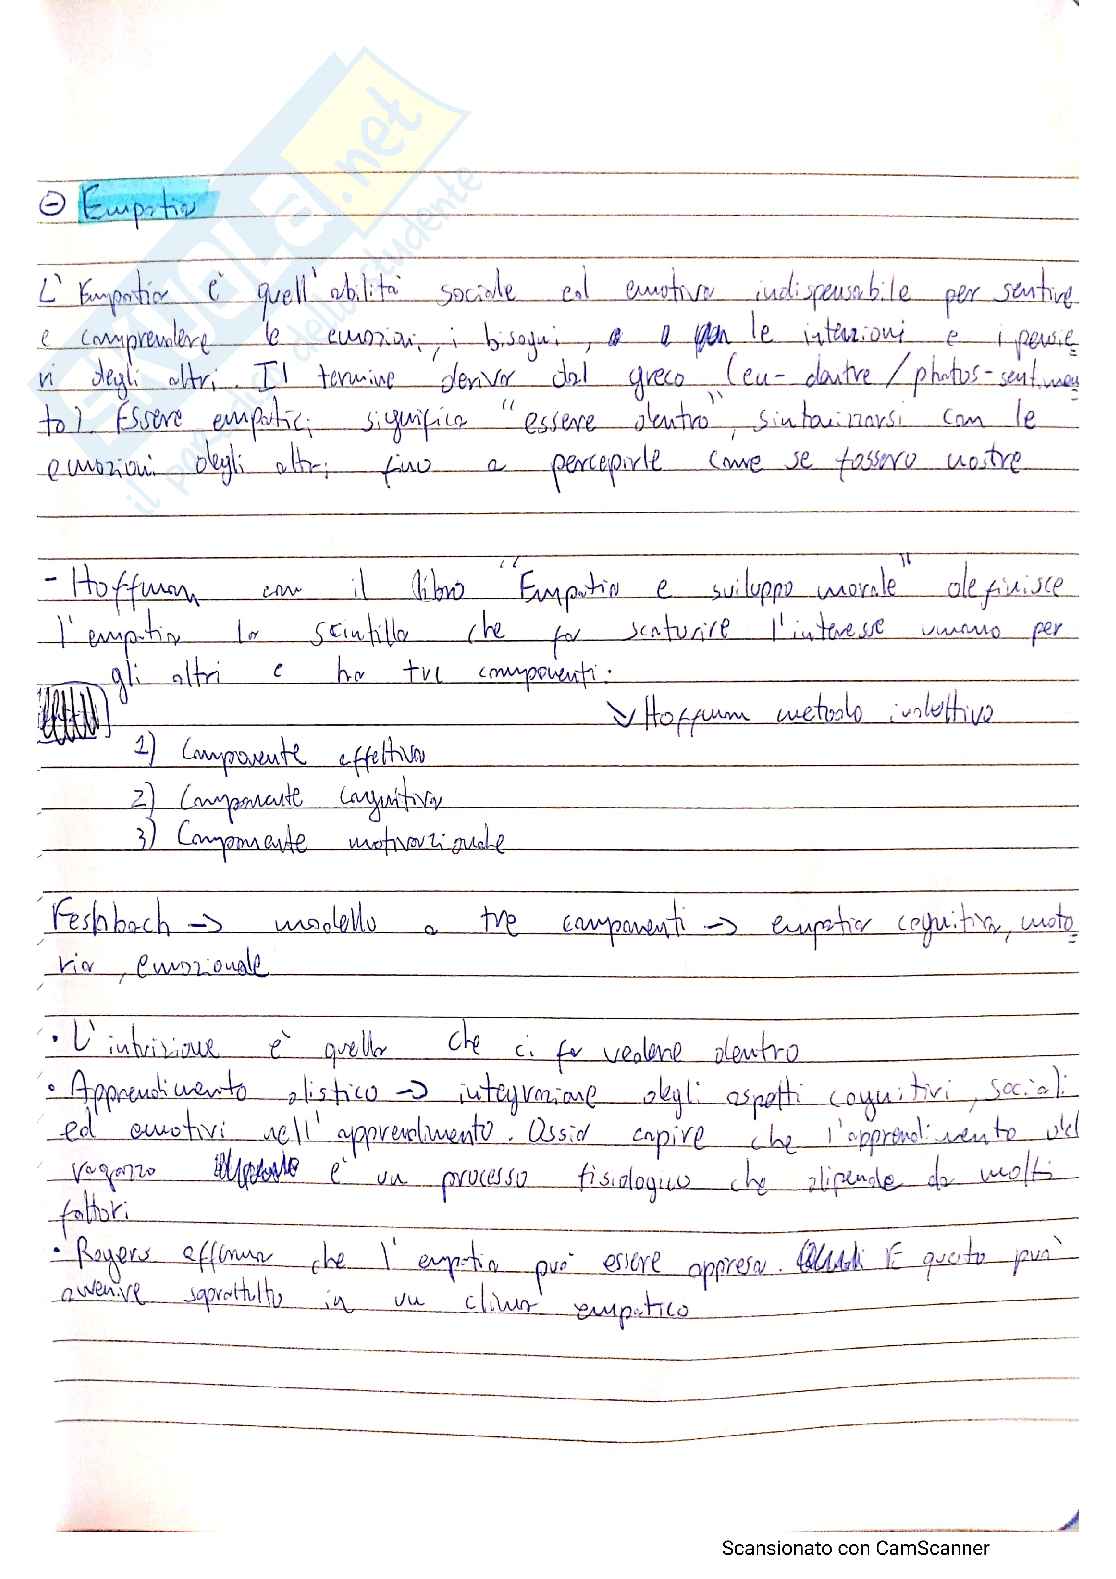 ⊖ Empatia
L'Empatia è quell'abilità sociale ed emotiva indispensabile per sentire
e comprendere le emozioni, i bisogni, e le intenzioni e i pensie
ri degli altri. Il termine deriva dal greco (eu-dentre/phatos-sentimen
to). Essere empatici significa "essere dentro", sintonizzarsi con le
emozioni degli altri fino a percepirle come se fossero nostre
- Hoffman con il libro "Empatia e sviluppo morale" definisce
l'empatia la scintilla che fa scaturire l'interesse umano per
gli altri e ha tre componenti:
↘ Hoffman metodo induttivo
1) Componente affettiva
2) Componente cognitiva
3) Componente motivazionale
Feshbach → modello a tre componenti → empatia cognitiva, moto
ria, emozionale
• L'intuizione è quella che ci fa vedere dentro
• Apprendimento olistico → integrazione degli aspetti cognitivi, sociali
ed emotivi nell'apprendimento. Ossia capire che l'apprendimento del
ragazzo è un processo fisiologico che dipende da molti
fattori
• Rogers afferma che l'empatia può essere appresa. E questo può
avvenire soprattutto in un clima empatico
SKUOLA.net
il paradiso dello studente
Scansionato con CamScanner